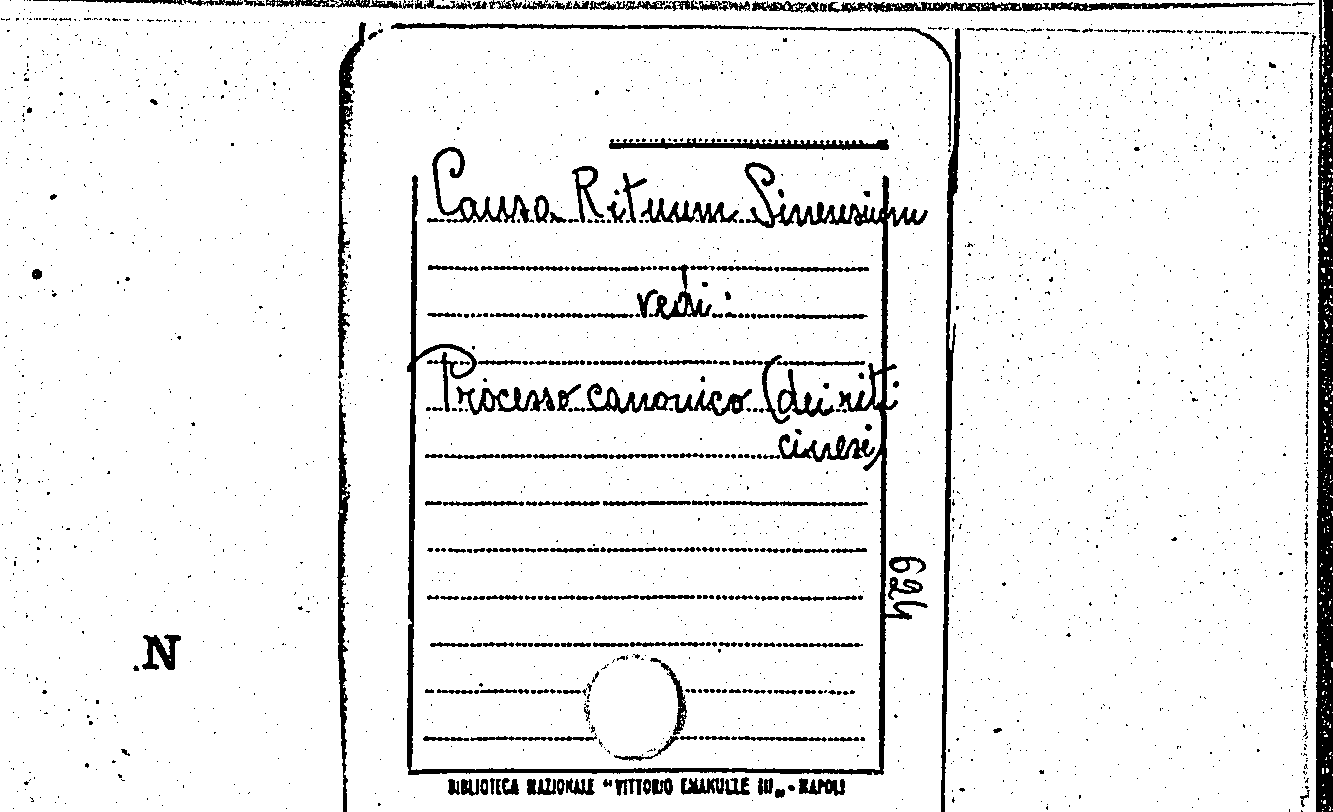 Causa Rituum Sinensium
vedi:
Processo canonico (dei riti
cinesi)
624
N
BIBLIOTECA NAZIONALE "VITTORIO EMANUELE III„ - NAPOLI